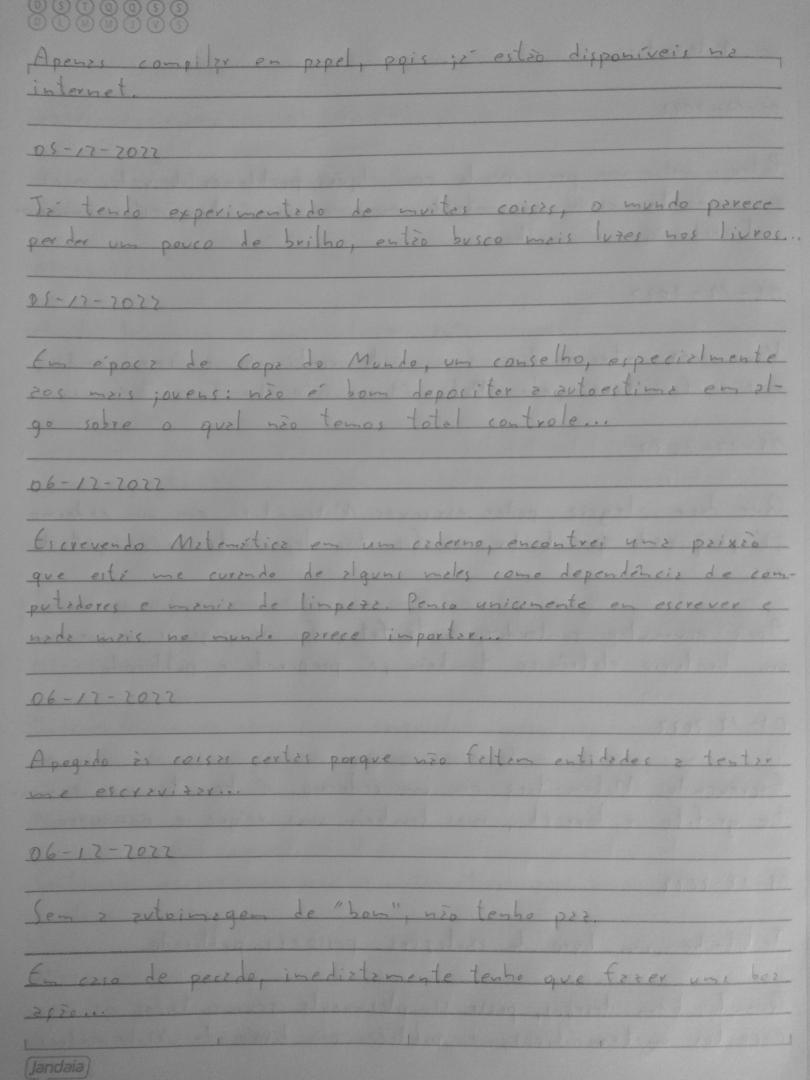 D S T Q Q S S
D L M M J V S
Apenas compilar en papel, pois já estão disponíveis na
internet.
05-12-2022
Já tendo experimentado de muitas coisas, o mundo parece
perder um pouco de brilho, então busco mais luzes nos livros...
05-12-2022
Em época de Copa do Mundo, um conselho, especialmente
aos mais jovens: não é bom depositar a autoestima em al-
go sobre o qual não temos total controle...
06-12-2022
Escrevendo Matemática em um caderno, encontrei uma paixão
que está me curando de alguns males como dependência de com-
putadores e mania de limpeza. Penso unicamente en escrever e
nada mais no mundo parece importar...
06-12-2022
Apegado às coisas certas porque não faltam entidades a tentar
me escravizar...
06-12-2022
Sem a autoimagem de "bom", não tenho paz.
Em caso de pecado, imediatamente tenho que fazer uma boa
ação...
Jandaia